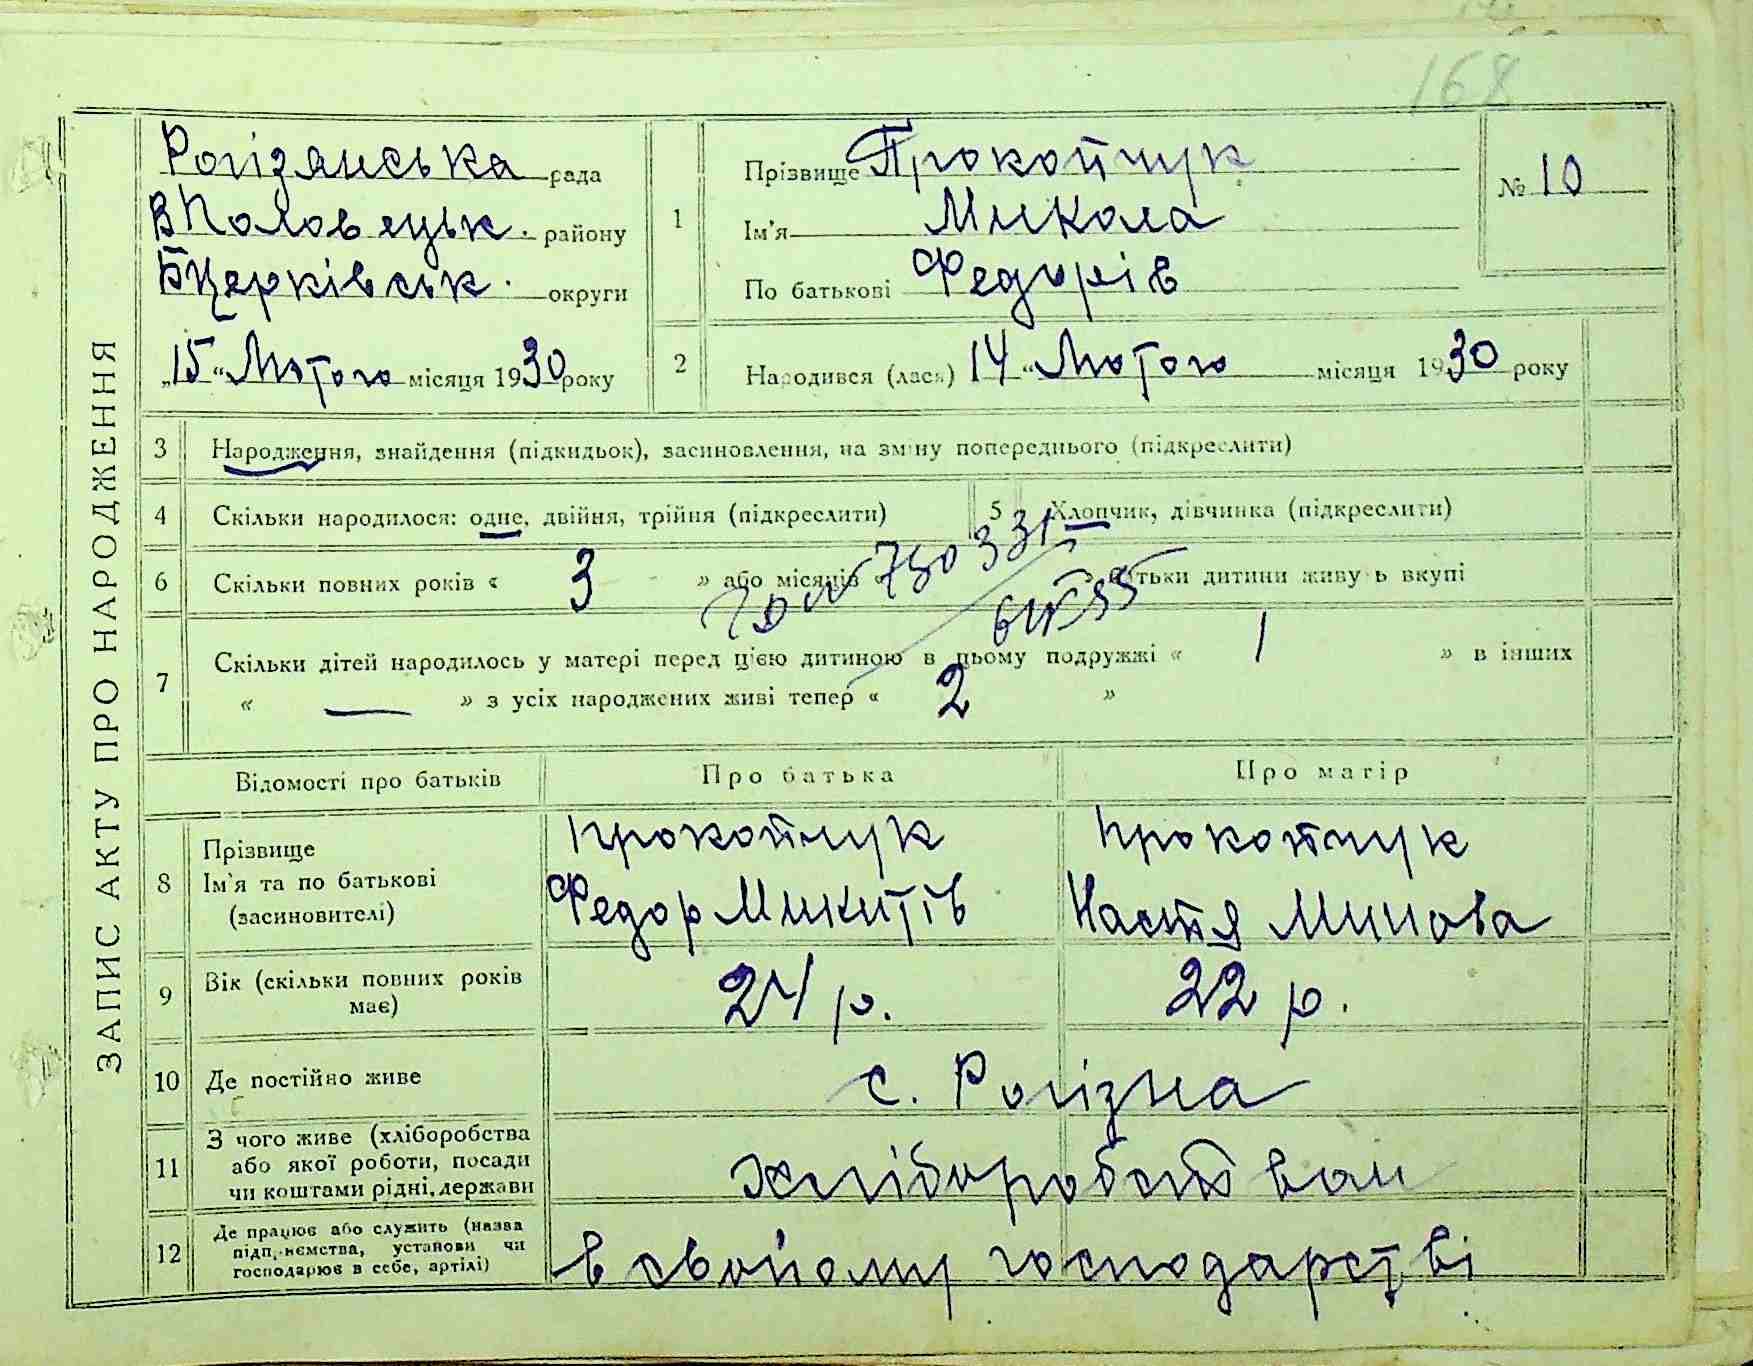 168
ЗАПИС АКТУ ПРО НАРОДЖЕННЯ
Рогізянська рада
ВПоловецьк. району
БЦерківськ. округи
„15“ Лютого місяця 1930 року
1
Прізвище Прокопчук
Ім'я Микола
По батькові Федорів
№ 10
2 Народився (лася) 14 “ Лютого місяця 1930 року
3 Народження, знайдення (підкидьок), засиновлення, на зміну попереднього (підкреслити)
4 Скільки народилося: одне, двійня, трійня (підкреслити) 5 Хлопчик, дівчинка (підкреслити)
6 Скільки повних років « 3 » або місяців « » батьки дитини живуть вкупі
750331
7 Скільки дітей народилось у матері перед цією дитиною в цьому подружжі « 1 » в інших
« — » з усіх народжених живі тепер « 2 »
Відомості про батьків Про батька Про матір
8 Прізвище
Ім'я та по батькові
(засиновителі)
Прокопчук
Федор Микитів
Прокопчук
Настя Минова
9 Вік (скільки повних років
має)
24 р. 22 р.
10 Де постійно живе с. Рогізна
11 З чого живе (хліборобства
або якої роботи, посади
чи коштами рідні, держави
хліборобством
12 Де працює або служить (назва
підприємства, установи чи
господарює в себе, артілі)
в свойому господарстві